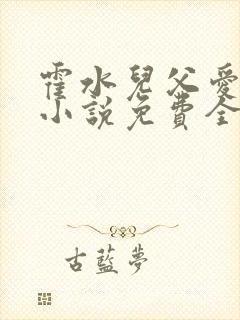 霍水兒父愛
小說免費全
古藍夢